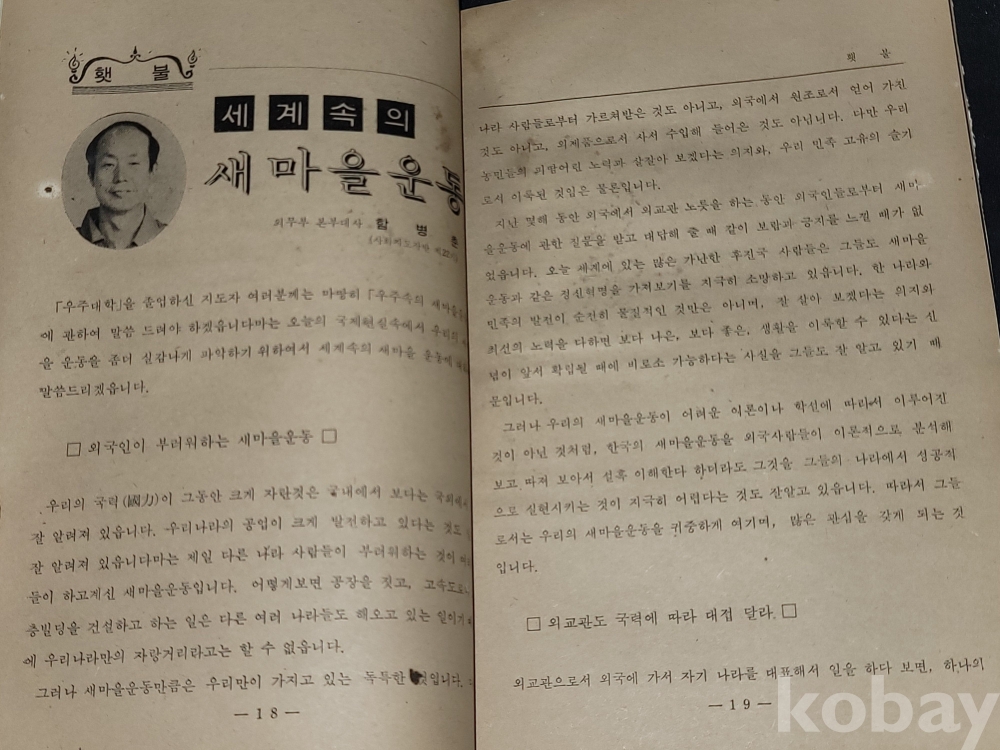 횃 불
세계속의
새마을운동
외무부 본부대사 함 병 춘
「우주대학」을 졸업하신 지도자 여러분께는 마땅히 「우주속의 새마을
에 관하여 말씀 드려야 하겠읍니다마는 오늘의 국제현실속에서 우리의
을 운동을 좀더 실감나게 파악하기 위하여서 세계속의 새마을 운동에
말씀드리겠읍니다.
□ 외국인이 부러워하는 새마을운동 □
우리의 국력(國力)이 그동안 크게 자란것은 국내에서 보다는 국외에서
잘 알려져 있읍니다. 우리나라의 공업이 크게 발전하고 있다는 것도
잘 알려져 있읍니다마는 제일 다른 나라 사람들이 부러워하는 것이
들이 하고계신 새마을운동입니다. 어떻게보면 공장을 짓고, 고속도로나
층빌딩을 건설하고 하는 일은 다른 여러 나라들도 해오고 있는 일이기
에 우리나라만의 자랑거리라고는 할 수 없읍니다.
그러나 새마을운동만큼은 우리만이 가지고 있는 독특한 것입니다.
— 18 —
횃 불
나라 사람들로부터 가르쳐받은 것도 아니고, 외국에서 원조로서 얻어 가진
것도 아니고, 외제품으로서 사서 수입해 들어온 것도 아닙니다. 다만 우리
농민들의 피땀어린 노력과 잘살아 보겠다는 의지와, 우리 민족 고유의 슬기
로서 이룩된 것임은 물론입니다.
지난 몇해 동안 외국에서 외교관 노릇을 하는 동안 외국인들로부터 새마
을운동에 관한 질문을 받고 대답해 줄 때 같이 보람과 긍지를 느낀 때가 없
었읍니다. 오늘 세계에 있는 많은 가난한 후진국 사람들은 그들도 새마을
운동과 같은 정신혁명을 가져보기를 지극히 소망하고 있읍니다. 한 나라와
민족의 발전이 순전히 물질적인 것만은 아니며, 잘 살아 보겠다는 의지와
최선의 노력을 다하면 보다 나은, 보다 좋은, 생활을 이룩할 수 있다는 신
념이 앞서 확립될 때에 비로소 가능하다는 사실을 그들도 잘 알고 있기 때
문입니다.
그러나 우리의 새마을운동이 어려운 이론이나 학설에 따라서 이루어진
것이 아닌 것처럼, 한국의 새마을운동을 외국사람들이 이론적으로 분석해
보고 따져 보아서 설혹 이해한다 하더라도 그것을 그들의 나라에서 성공적
으로 실현시키는 것이 지극히 어렵다는 것도 잘알고 있읍니다. 따라서 그들
로서는 우리의 새마을운동을 귀중하게 여기며, 많은 관심을 갖게 되는 것
입니다.
□ 외교관도 국력에 따라 대접 달라. □
외교관으로서 외국에 가서 자기 나라를 대표해서 일을 하다 보면, 하나의
— 19 —
kobay